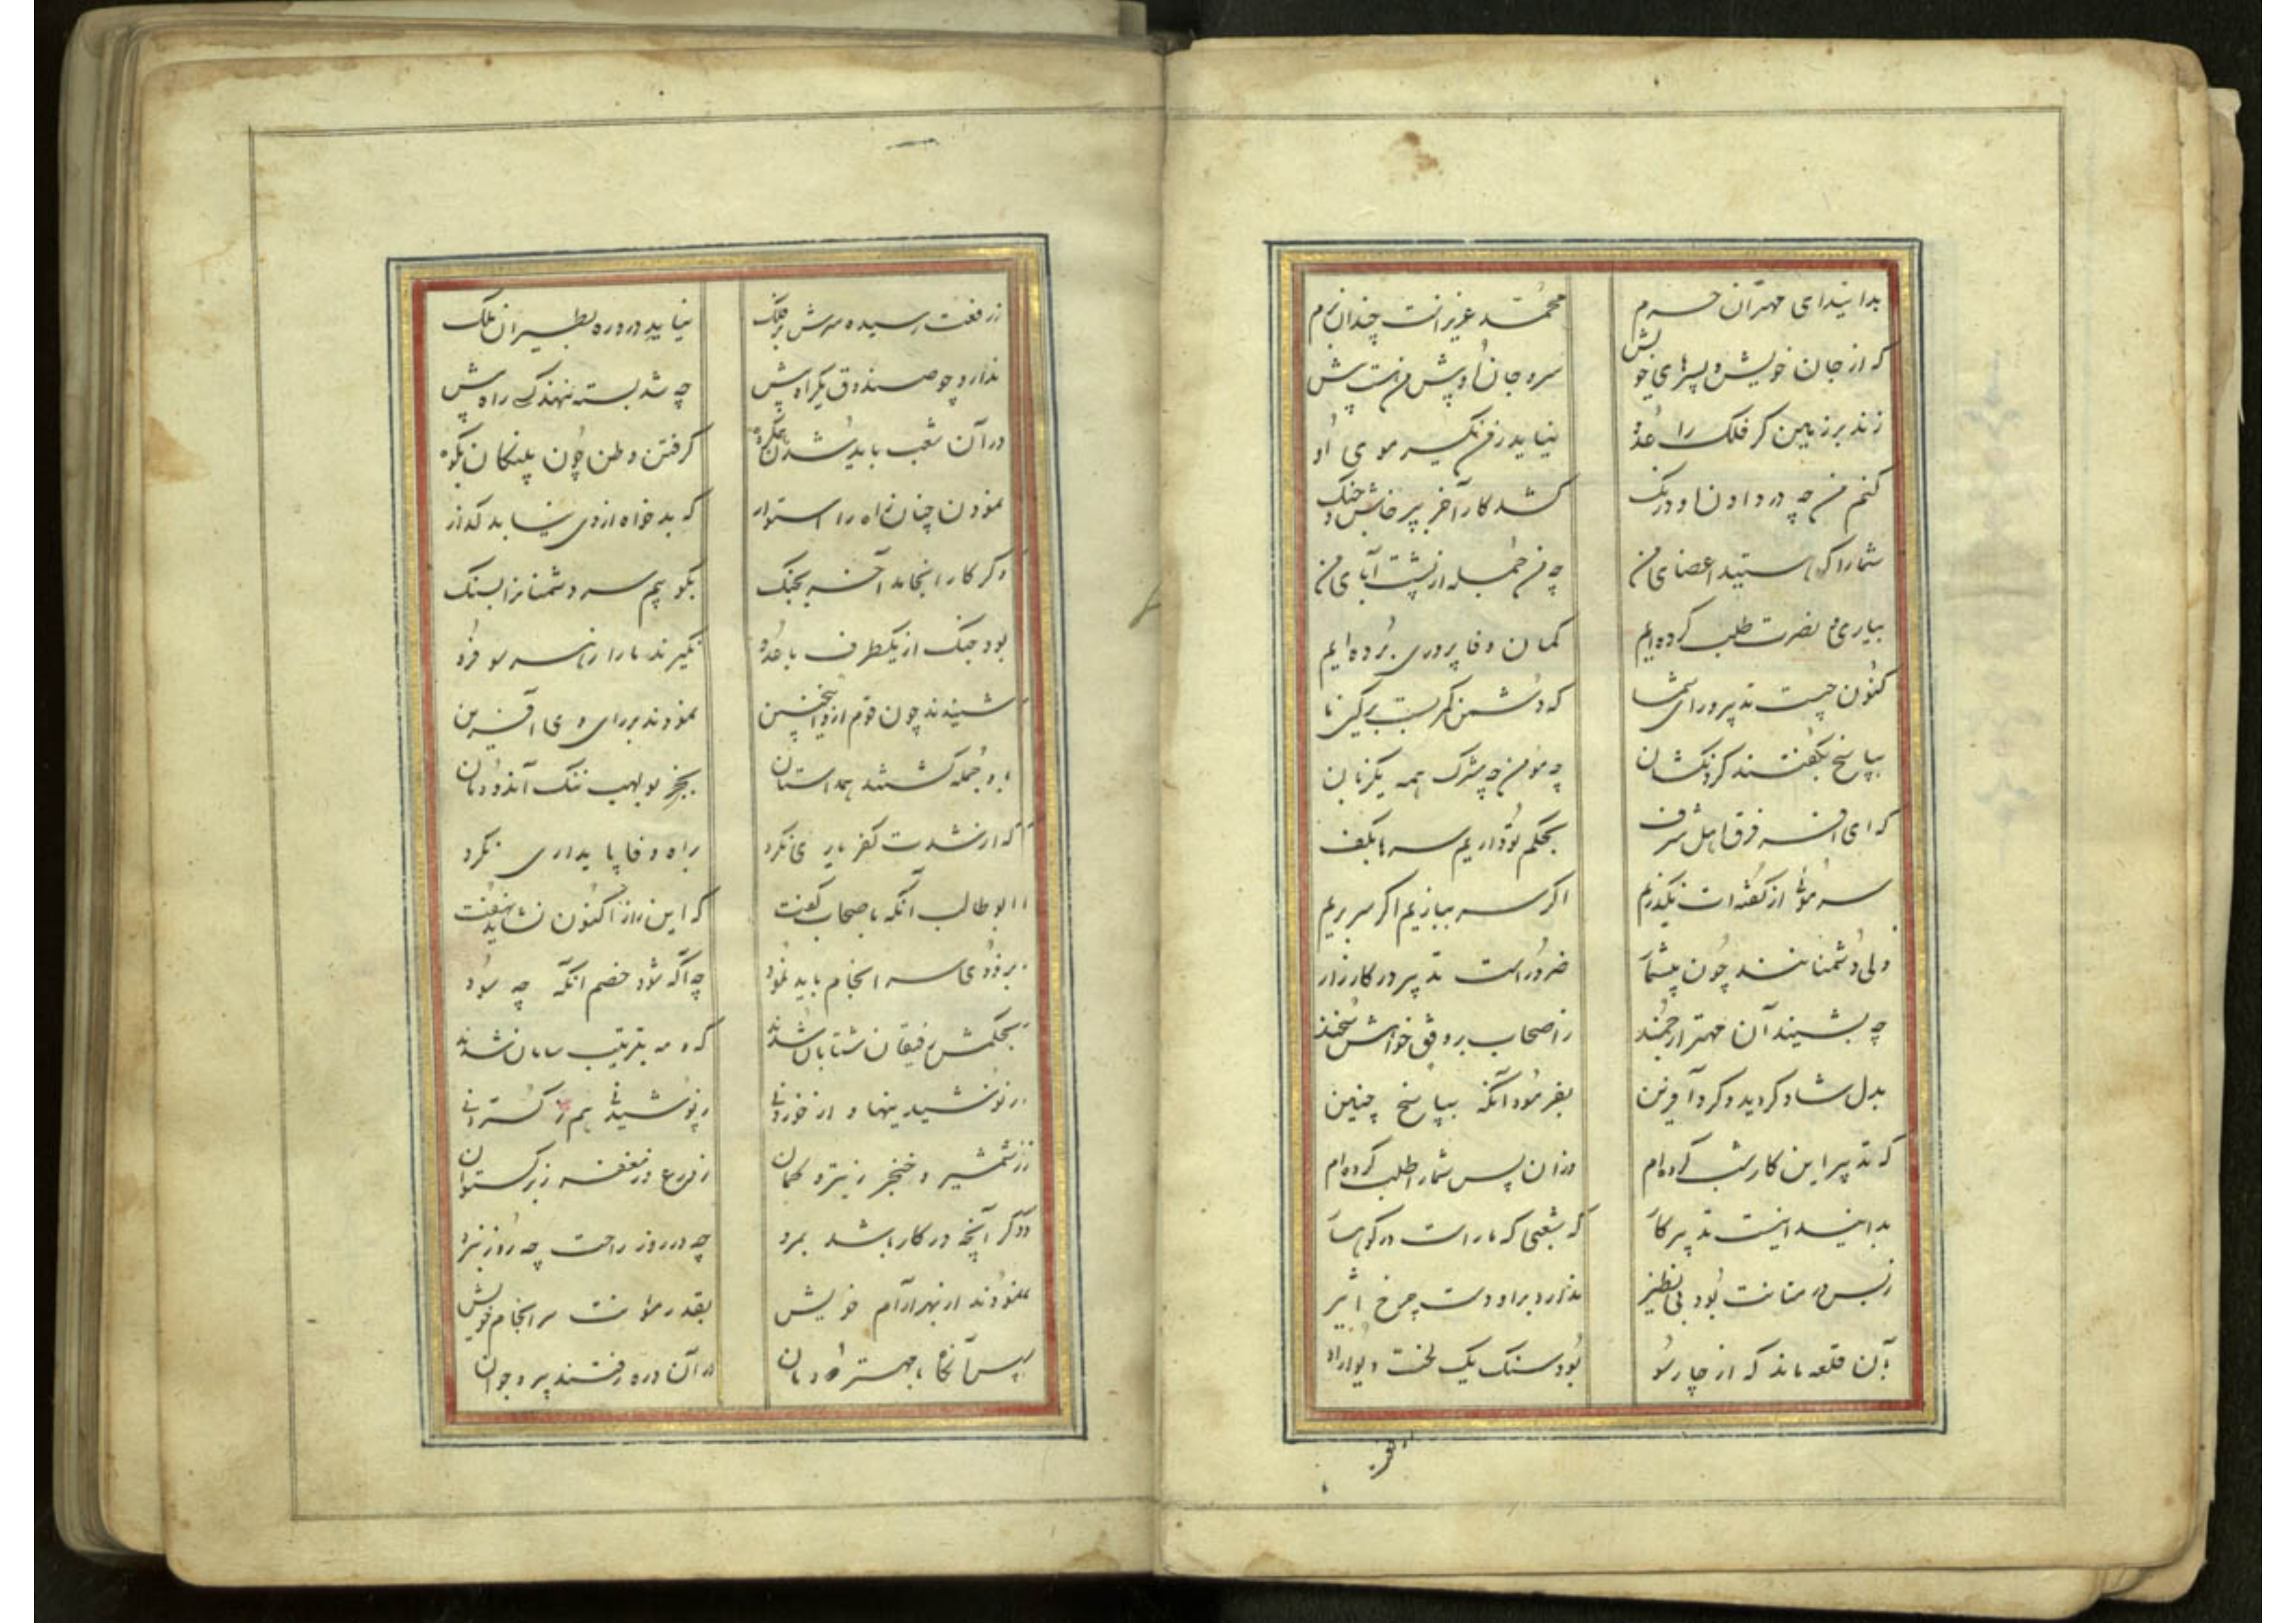 بدانیدای مهتران حرم محمّد عزیزاست چندان برم
که از جان خویش و پسرهای خویش سر و جان او پیش من است پیش
زند بر زمین کر فلک را عدو نیاید ز من یکسر موی او
کنم من چه در دادن او درنک کشد کار آخر بپرخاش و جنک
شمارا که هستید اعضای من چه من جمله از پشت آبای من
بیاری و نصرت طلب کرده ایم کمان وفا پروری برده ایم
کنون چیست تدبیر و رای شما که دشمن کمر بست بر کین ما
بپاسخ بکفتند کردنکشان چه مومن چه مشرک همه یکزبان
که ای افسر فرق اهل شرف بحکم تو داریم سرها بکف
سر موئی از کفته ات نکذریم اکر سر ببازیم اکر سر بریم
ولی دشمنانند چون بیشمار ضرور است تدبیر در کارزار
چه بشنید آن مهتر ارجمند ز اصحاب بر وفق خواهش سخن
بدل شاد کردید و کرد آفرین بفرمود آنکه بپاسخ چنین
که تدبیر این کار شب کرده ام وزان پس شمارا طلب کرده ام
بدانید اینست تدبیر کار که شعبی که ماراست در کوهسار
ز بس در متانت بود بی نظیر ندارد براو دست چرخ اثیر
بآن قلعه ماند که از چارسو بود سنک یک لخت دیوار او
ز رفعت رسیده سرش بر فلک نیاید در و ره بطیران ملک
ندارد چو صندوق یکراه پیش چه شد بسته نهند کسی راه پیش
در آن شعب باید شدن کرفتن وطن چون پلنکان بکوه
نمودن چنان راه را استوار که بدخواه از وی نیابد کذار
وکر کار انجامد آخر بجنک بکوبیم سر دشمنان را بسنک
بود جنک از یکطرف با عدو نکیرند مارا ز سر مو فرو
شنیدند چون قوم از و این سخن نمودند بر رای وی آفرین
باو جمله کشتند همداستان بجز بولهب ننک آندودمان
که از شدت کفر یاری نکرد براه وفا پایداری نکرد
ابوطالب آنکه باصحاب کفت که این راز اکنون نشاید نهفت
بزودی سرانجام باید نمود چه آکه شود خصم آنکه چه سود
بحکمش رفیقان شتابان شدند که و مه بترتیب سامان شدند
ز نوشیدنیها و از خوردنی ز پوشیدنی هم ز کستردنی
ز شمشیر و خنجر ز تیر و کمان ز درع و ز مغفر ز برکستوان
دکر آنچه در کار باشد بمرد چه در روز راحت چه روز نبرد
نمودند از بهر آرام خویش بقدر مؤنت سرانجام خویش
پس آنکاه با مهتر دودمان در آن دره رفتند پیر و جوان